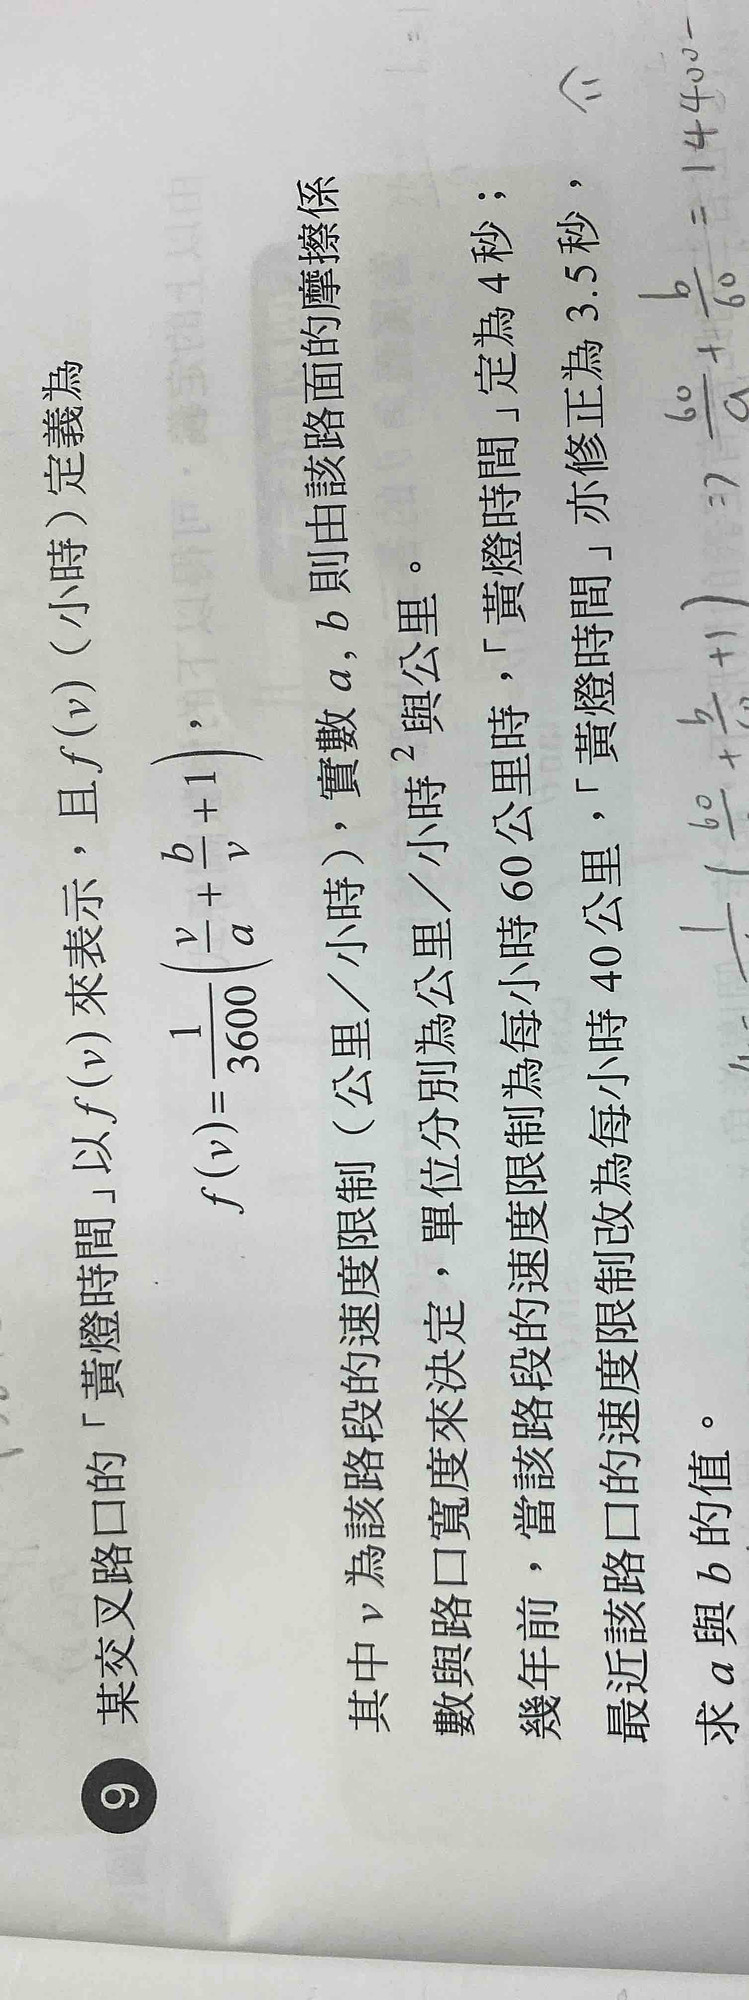 9 某交叉路口的「黃燈時間」以 f(v) 來表示，且 f(v)（小時）定義為
f(v)=\frac{1}{3600}\left(\frac{v}{a}+\frac{b}{v}+1\right)，
其中 v 為該路段的速度限制（公里／小時），實數 a, b 則由該路面的摩擦係
數與路口寬度來決定，單位分別為公里／小時² 與公里。
幾年前，當該路段的速度限制為每小時 60 公里時，「黃燈時間」定為 4 秒；
最近該路口的速度限制改為每小時 40 公里，「黃燈時間」亦修正為 3.5 秒，
求 a 與 b 的值。
⇒ \frac{60}{a}+\frac{b}{60}=14400-